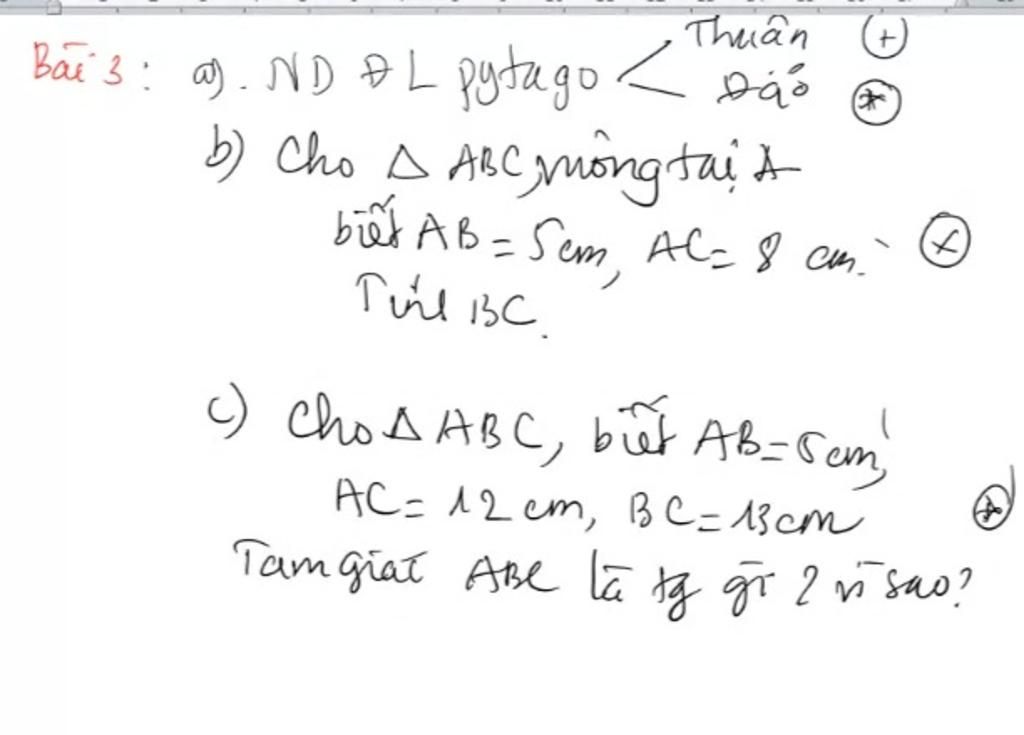 Bài 3: a). ND ĐL pytago < Thuân (+)
Đảo (*)
b) Cho Δ ABC, muông tại A
biết AB = 5cm, AC = 8 cm. (x)
Tính BC.
c) Cho Δ ABC, biết AB = 5cm,
AC = 12 cm, BC = 13cm
Tam giác ABC là tg gì ? vì sao?